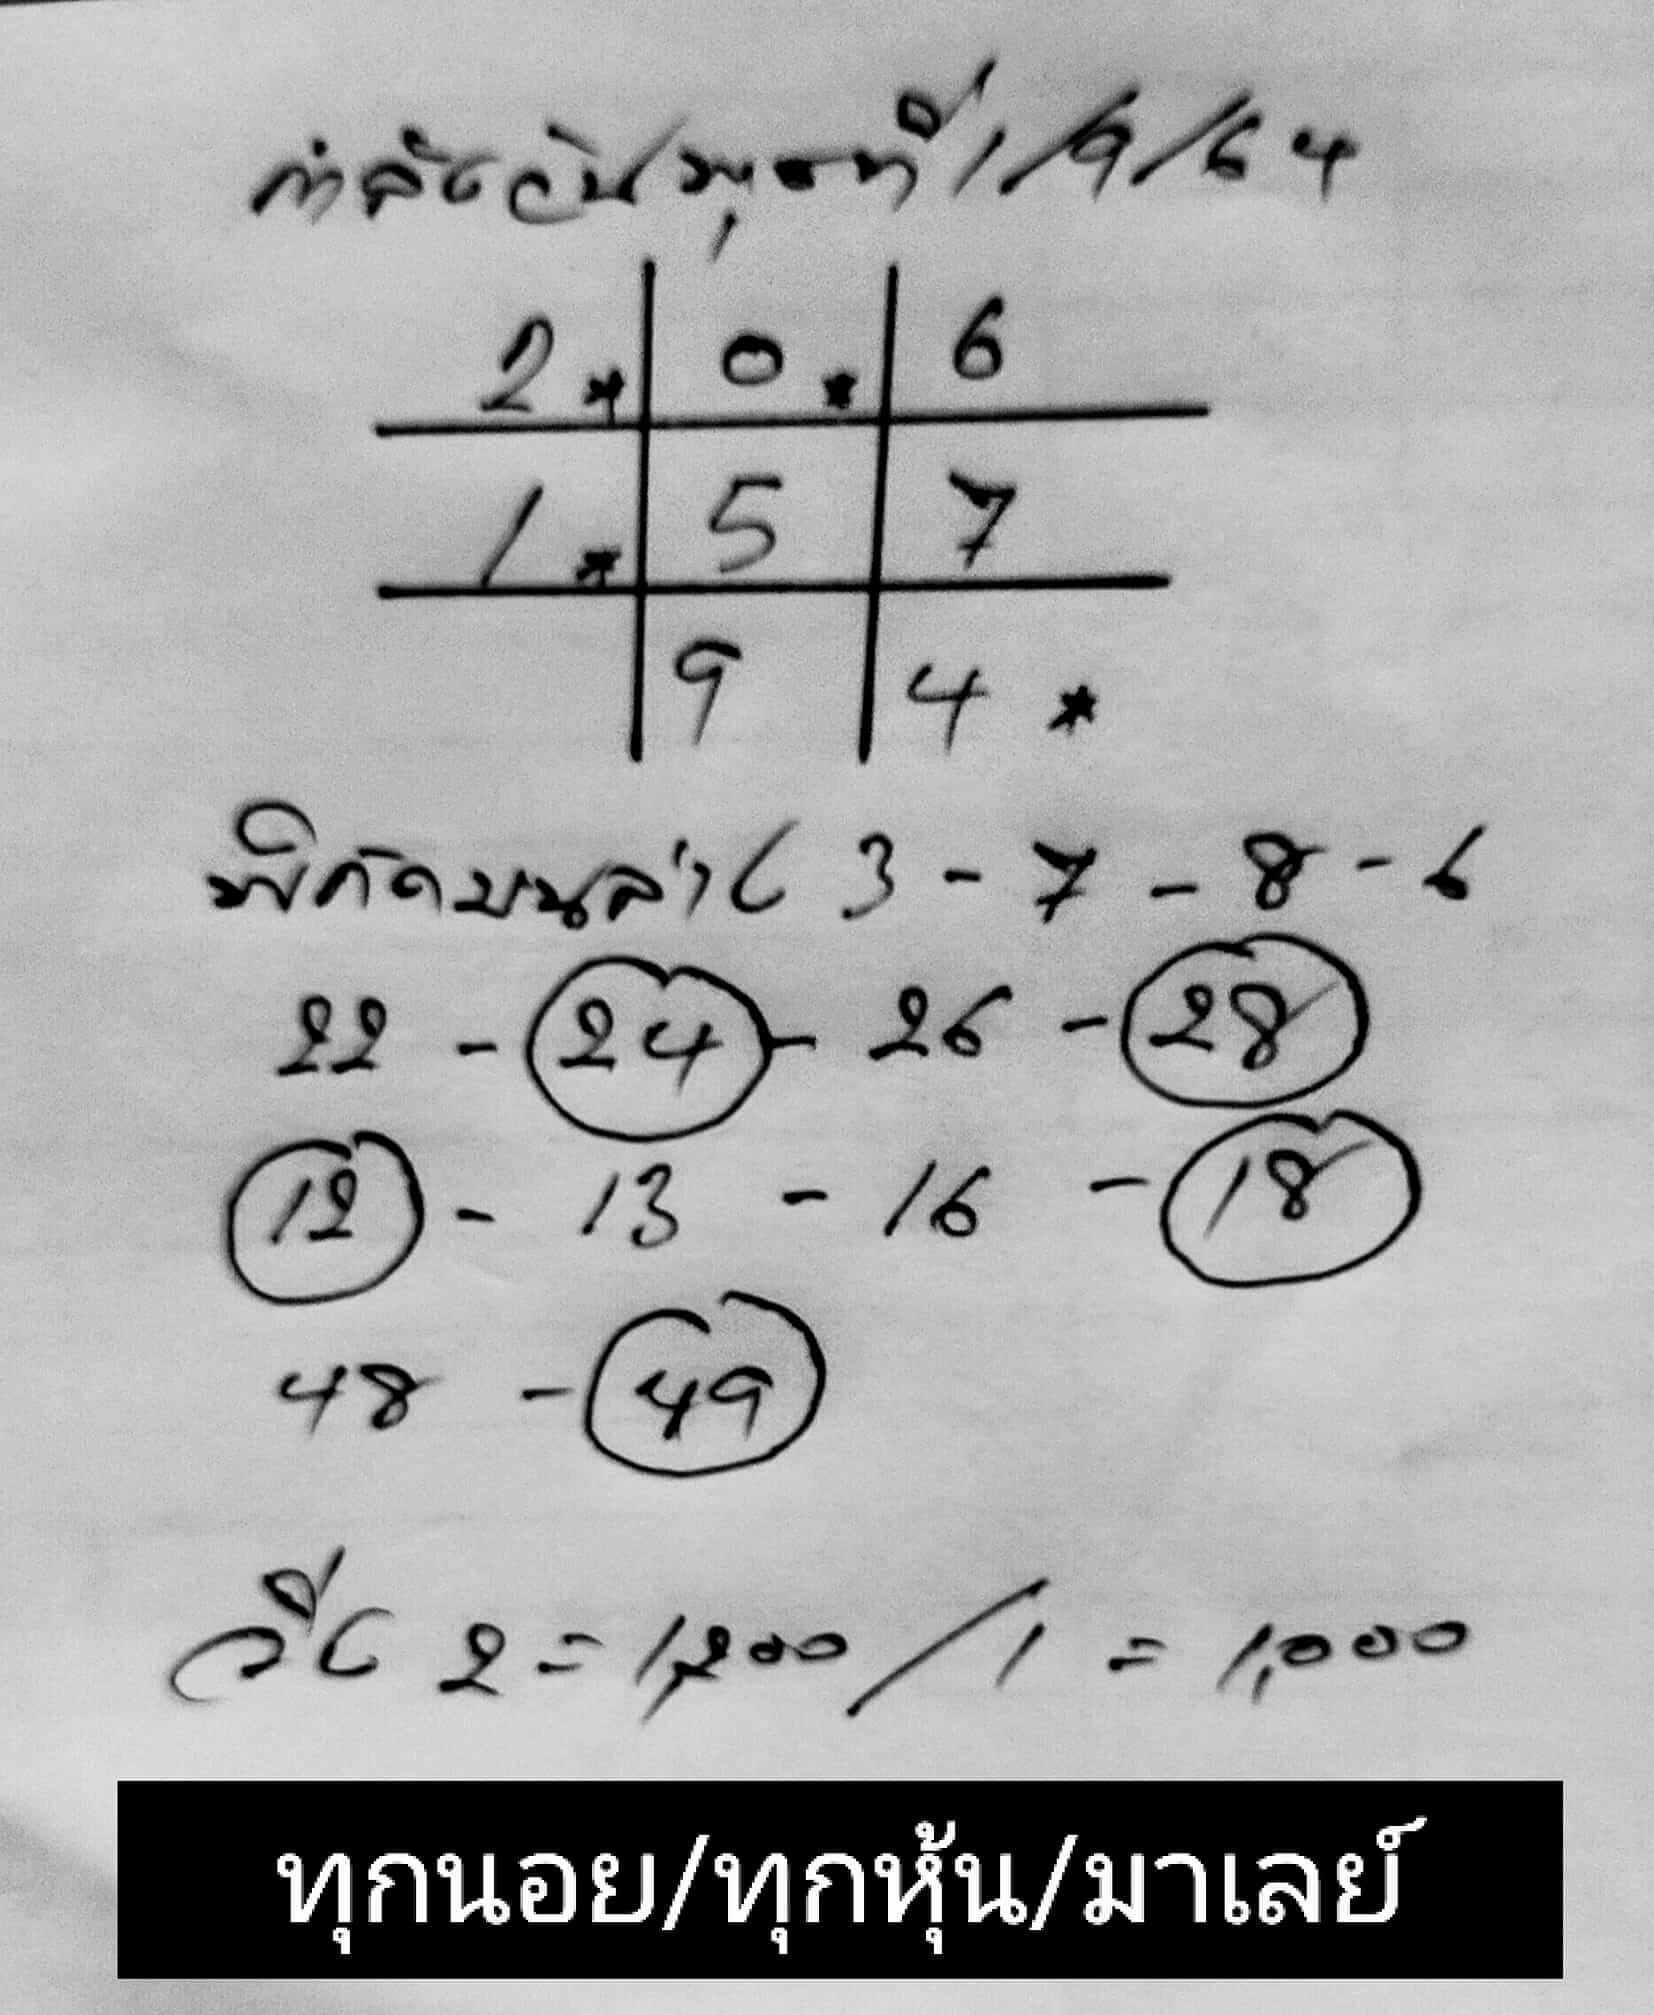 กำลังวันพุธที่ 1/9/64
2* 0* 6
1* 5 7
9 4*
พิกัดบนล่าง 3 - 7 - 8 - 6
22 - 24 - 26 - 28
12 - 13 - 16 - 18
48 - 49
วิ่ง 2 = 1,200 / 1 = 1,000
ทุกนอย/ทุกหุ้น/มาเลย์